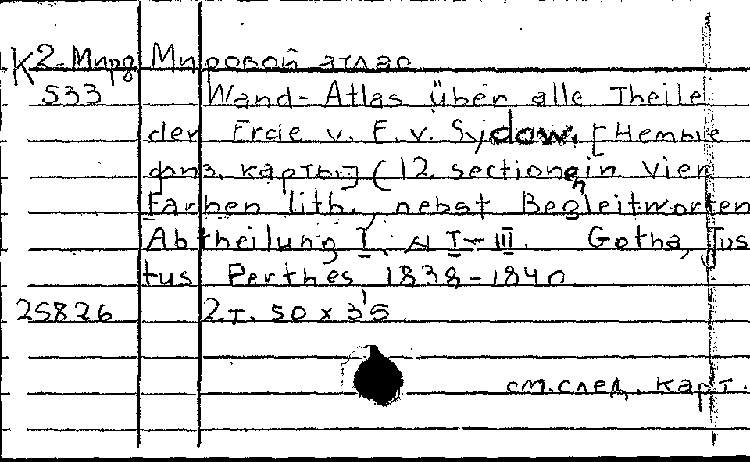 К2-Мирд Мировой атлас
533 Wand-Atlas über alle Theile
der Erde v. E. v. Sydow. [Немые
физ. карты] (12 sectionen in vier
Farben lith., nebst Begleitworten
Abtheilung I, N I-III. Gotha, Jus
tus Perthes, 1838-1840
25826 2.т. 50 х 35
см. след. карт.